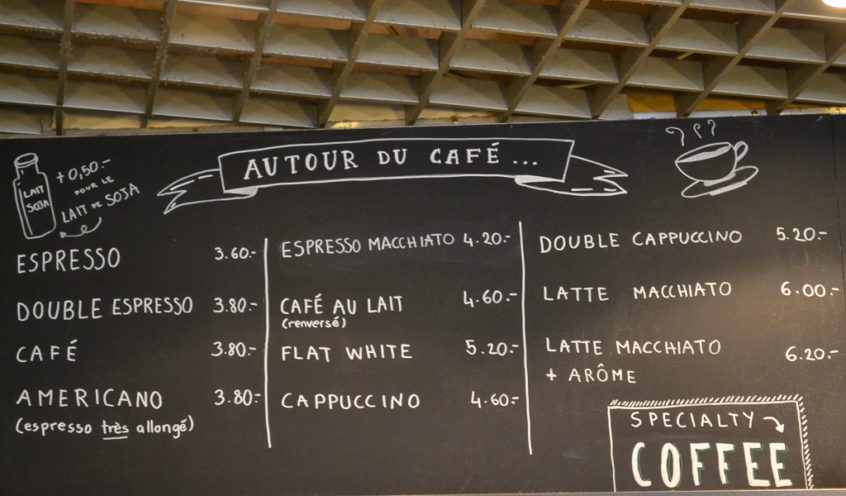 LAIT
SOJA
+0,50.-
POUR LE
LAIT DE SOJA
AUTOUR DU CAFÉ...
ESPRESSO 3.60.-
DOUBLE ESPRESSO 3.80.-
CAFÉ 3.80.-
AMERICANO 3.80.-
(espresso très allongé)
ESPRESSO MACCHIATO 4.20.-
CAFÉ AU LAIT 4.60.-
(renversé)
FLAT WHITE 5.20.-
CAPPUCCINO 4.60.-
DOUBLE CAPPUCCINO 5.20.-
LATTE MACCHIATO 6.00.-
LATTE MACCHIATO 6.20.-
+ ARÔME
SPECIALTY
COFFEE